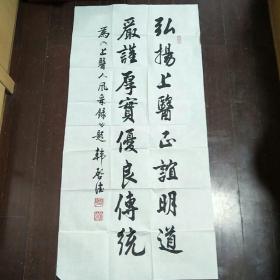 弘揚上醫正誼明道
嚴謹厚實優良傳統
為《上醫人風采錄》題 韓啓德